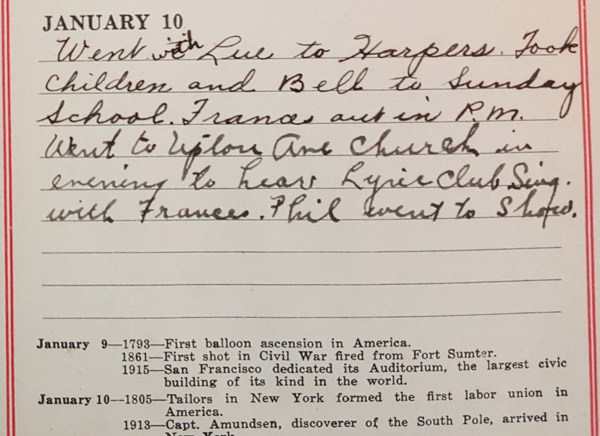 JANUARY 10
Went with Lue to Harpers. Took
Children and Bell to Sunday
School. Frances out in P.M.
Went to Upton Ave Church in
evening to hear Lyric Club Sing.
with Frances. Phil went to Show.
January 9—1793—First balloon ascension in America.
1861—First shot in Civil War fired from Fort Sumter.
1915—San Francisco dedicated its Auditorium, the largest civic
building of its kind in the world.
January 10—1805—Tailors in New York formed the first labor union in
America.
1913—Capt. Amundsen, discoverer of the South Pole, arrived in
New York.